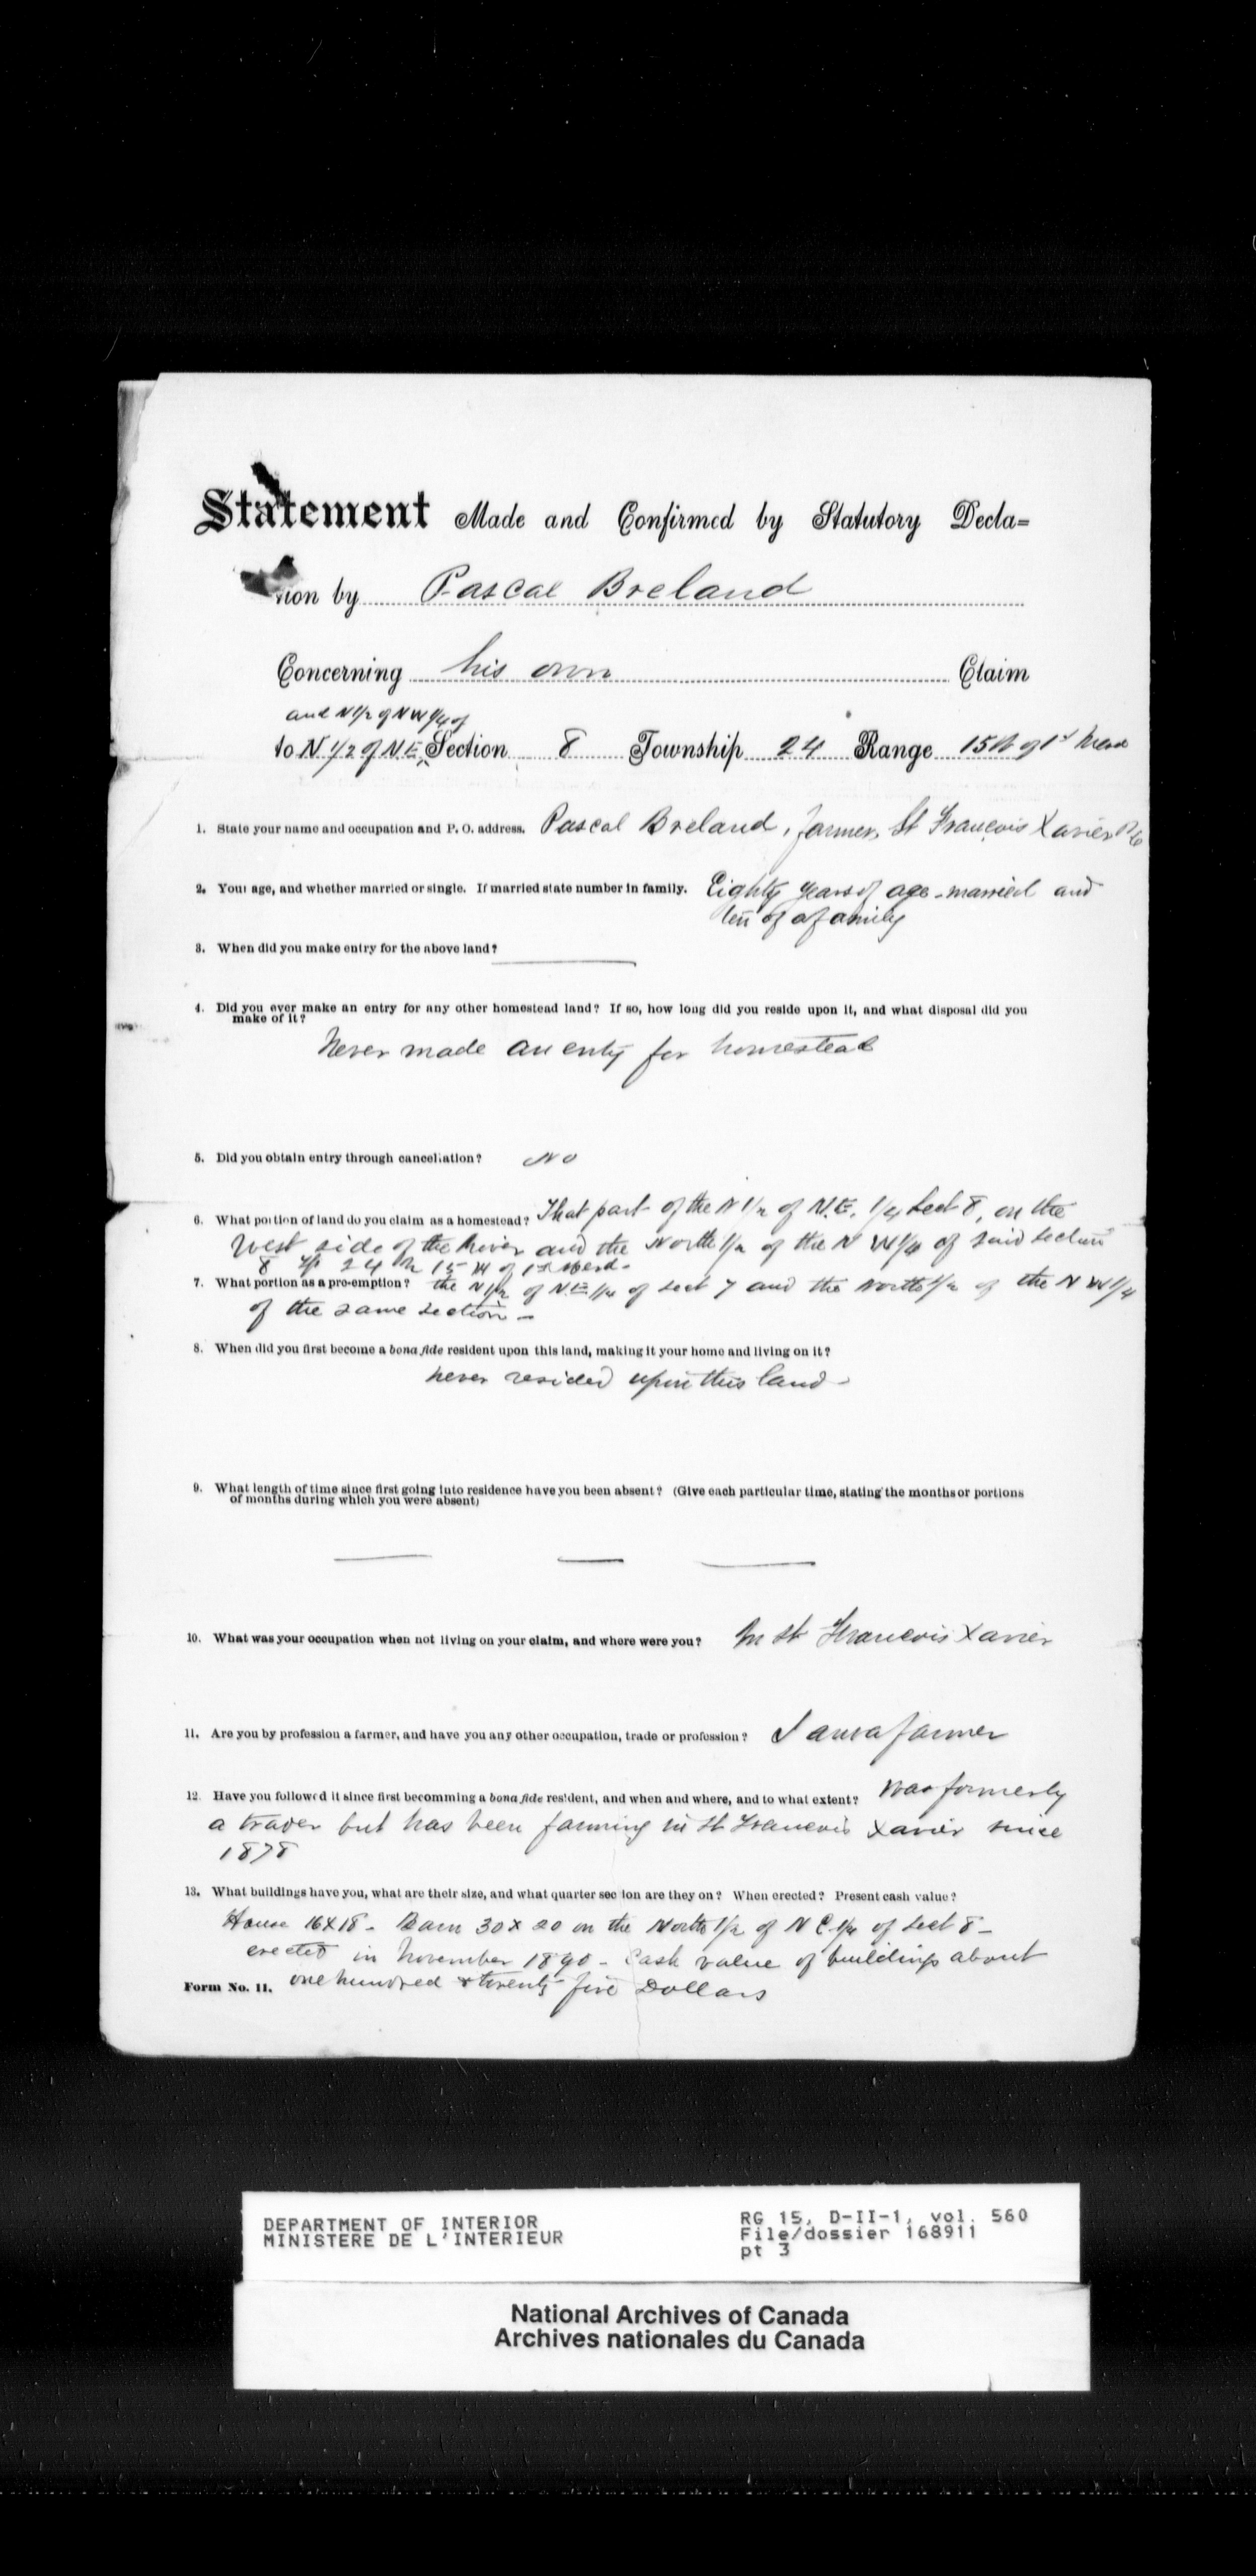 Statement Made and Confirmed by Statutory Decla=
tion by Pascal Breland
Concerning his own Claim
and N 1/2 of NW 1/4 of
to N. 1/2 of N.E. Section 8 Township 24 Range 15 W of 1st Mer
1. State your name and occupation and P. O. address. Pascal Breland, farmer, St Francois Xavier P.O
2. Your age, and whether married or single. If married state number in family. Eighty years of age - married and
ten of a family
3. When did you make entry for the above land?
4. Did you ever make an entry for any other homestead land? If so, how long did you reside upon it, and what disposal did you
make of it?
Never made an enty for homestead
5. Did you obtain entry through cancellation? No
6. What portion of land do you claim as a homestead? That part of the N 1/2 of N.E. 1/4 Sect 8, on the
West side of the River and the North 1/2 of the N W 1/4 of said section
8 Tp 24 R 15 W of 1st Merd-
7. What portion as a pre-emption? the N 1/2 of N.E 1/4 of Sect 7 and the North 1/2 of the N W 1/4
of the same section -
8. When did you first become a bona fide resident upon this land, making it your home and living on it?
never resided upon this land -
9. What length of time since first going into residence have you been absent? (Give each particular time, stating the months or portions
of months during which you were absent)
10. What was your occupation when not living on your claim, and where were you? In St Francois Xavier
11. Are you by profession a farmer, and have you any other occupation, trade or profession? I am a farmer
12. Have you followed it since first becomming a bona fide resident, and when and where, and to what extent? was formerly
a trader but has been farming in St Francois Xavier since
1878
13. What buildings have you, what are their size, and what quarter section are they on? When erected? Present cash value?
House 16 x 18 - Barn 30 x 20 on the North 1/2 of N E 1/4 of Sect 8 -
erected in November 1890 - Cash value of buildings about
Form No. 11. one hundred & twenty five Dollars
DEPARTMENT OF INTERIOR
MINISTERE DE L'INTERIEUR
RG 15, D-II-1, vol. 560
File/dossier 168911
pt 3
National Archives of Canada
Archives nationales du Canada